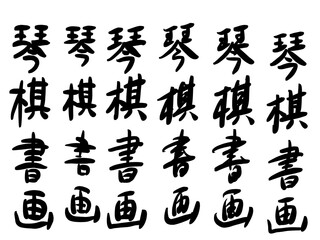 琴棋書画
琴棋書画
琴棋書画
琴棋書画
琴棋書画
琴棋書画